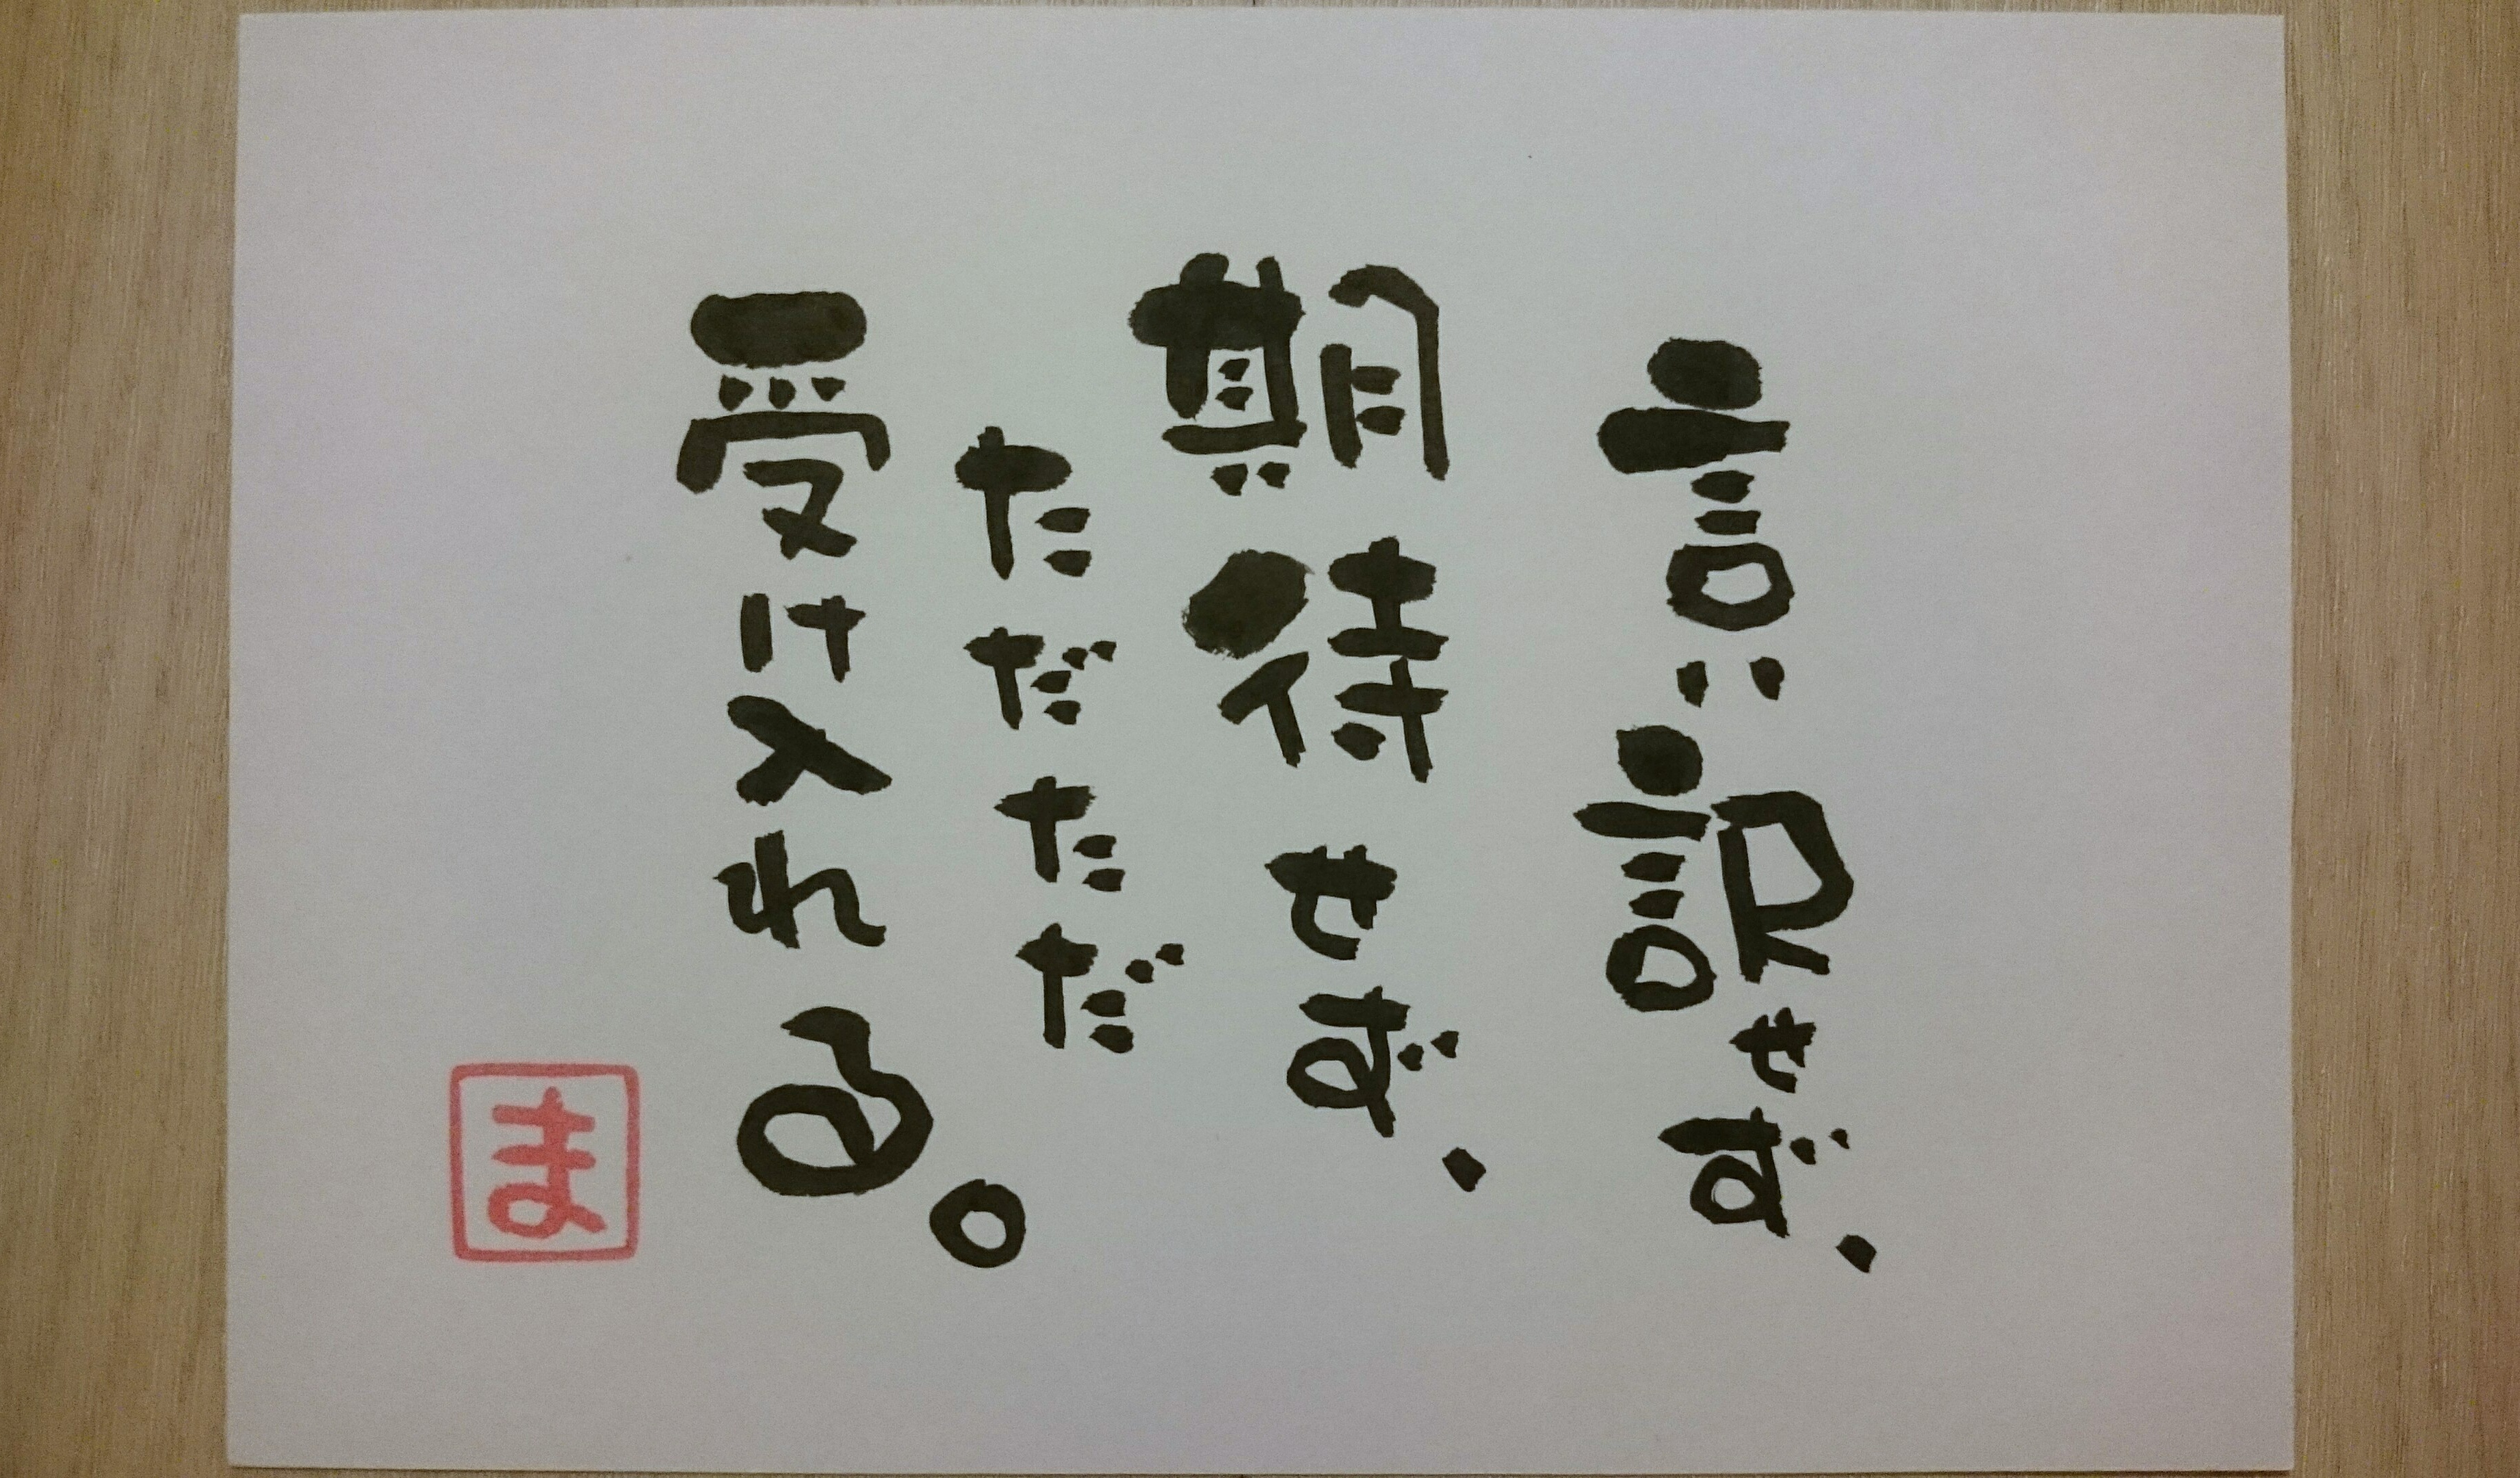 言い訳せず、
期待せず、
ただただ
受け入れる。
ま